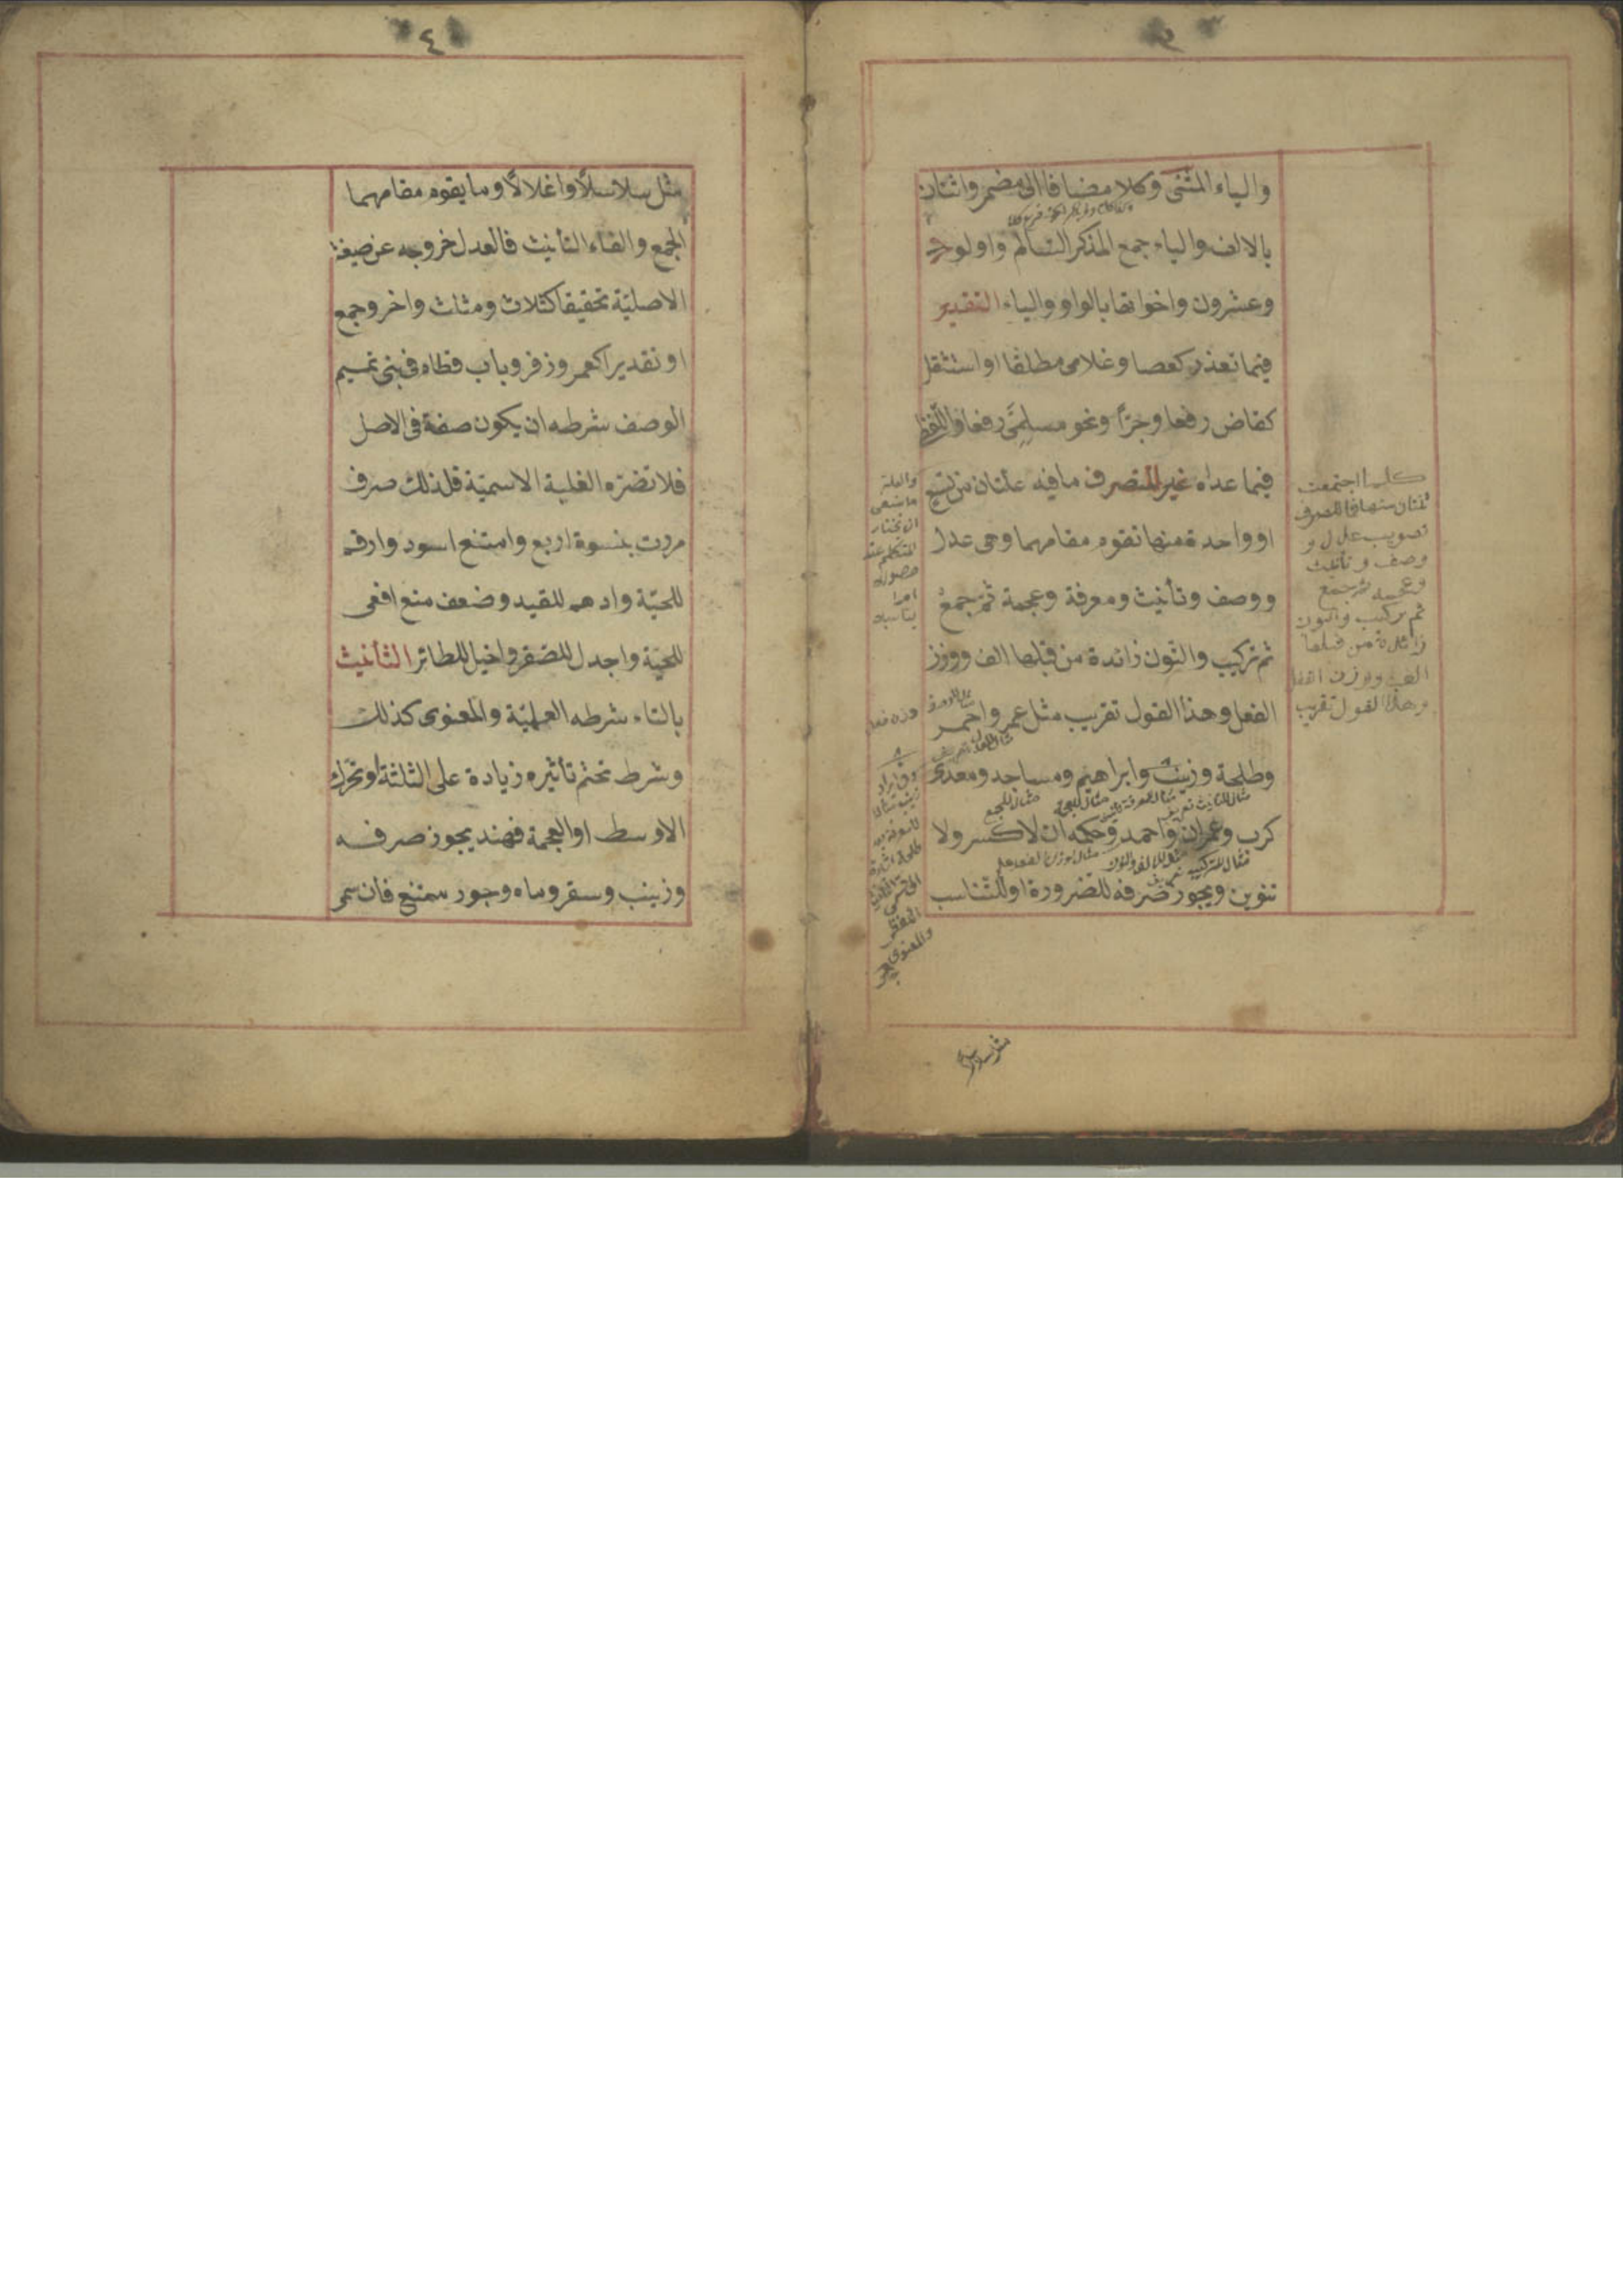 والياء المثنّى وكلا مضافا الى مضمر واثنان
بالالف والياء جمع المذكر السالم واولو
وعشرون واخواتها بالواو والياء التقدير
فيما تعذر كعصا وغلامى مطلقا او استثقل
كقاض رفعا وجرّا ونحو مسلمىّ رفعا واللفظ
فيما عداه غير المنصرف ما فيه علتان من تسع
او واحدة منها تقوم مقامهما وهى عدل
ووصف وتأنيث ومعرفة وعجمة ثم جمع
ثم تركيب والنون زائدة من قبلها الف ووزن
الفعل وهذا القول تقريب مثل عمر واحمر
وطلحة وزينب وابراهيم ومساجد ومعدى
كرب وعمران واحمد وحكمه ان لا كسر ولا
تنوين ويجوز صرفه للضرورة او للتناسب
كلما اجتمعت
ثنتان منها فما للصرف
تصويب عدل و
وصف وتأنيث
وعجمة ثم جمع
ثم تركيب والنون
زائدة من قبلها
الف ووزن الفعل
وهذا القول تقريب
٤
مثل سلاسلاً واغلالاً وما يقوم مقامهما
الجمع والفاء التأنيث فالعدل خروجه عن صيغته
الاصليّة تحقيقا كثلاث ومثلث واخر وجمع
او تقديرا كعمر وزفر وباب قطام فى بنى تميم
الوصف شرطه ان يكون صفة فى الاصل
فلا تضرّه الغلبة الاسميّة فلذلك صرف
مررت بنسوة اربع وامتنع اسود وارقم
للحيّة وادهم للقيد وضعف منع افعى
للحيّة واجدل للصقر واخيل للطائر التأنيث
بالتاء شرطه العلميّة والمعنوى كذلك
وشرط تحتم تأثيره زيادة على الثلثة او تحرّك
الاوسط او العجمة فهند يجوز صرفه
وزينب وسقر وماه وجور ممتنع فان سمى